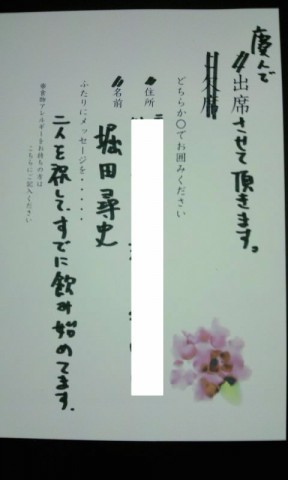 慶んで
出席させて頂きます。
どちらか○でお囲みください
住所
名前
堀田尋史
ふたりにメッセージを・・・・・・
二人を祝して、すでに飲み始めてます。
食物アレルギーをお持ちの方は
こちらにご記入ください